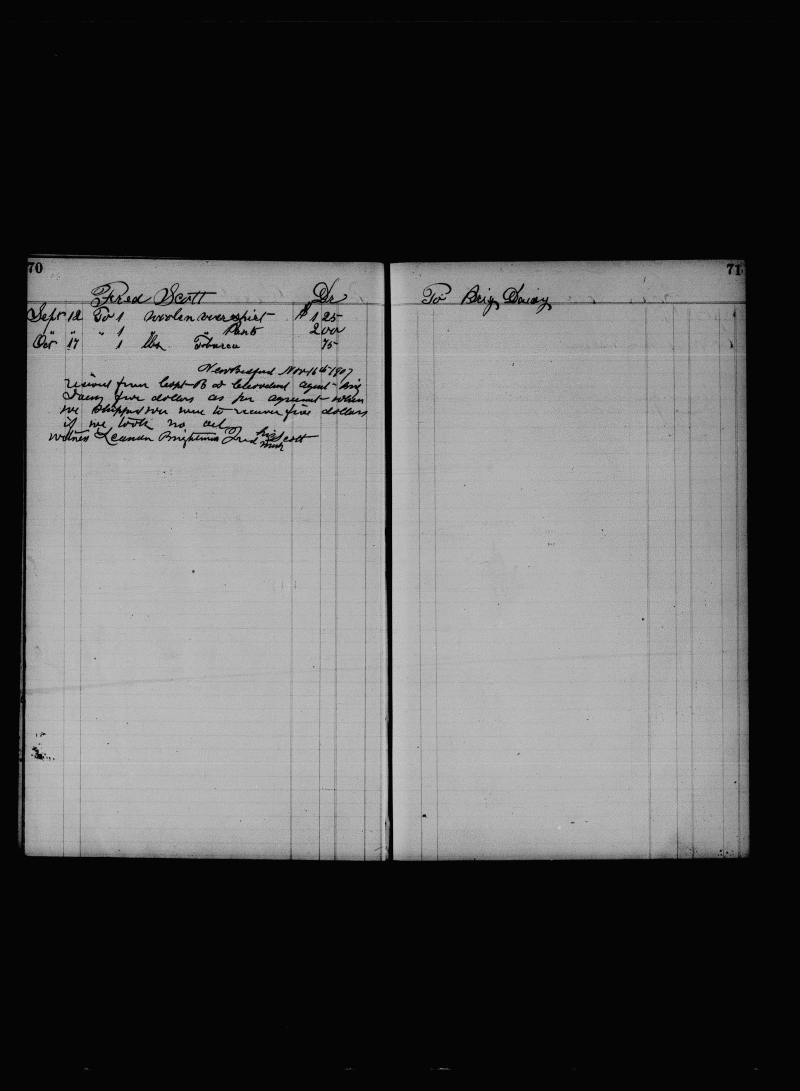 70
Fred Scott Dr
Sept 12 To 1 Woolen over shirt $ 1 25
" " " 1 " " Pants 2 00
Oct 17 1 lbs Tobacco 75
New Bedford Nov 16th 1907
recived from Capt B D Cleveland agent Brig
Daisy five dollars as per agreement when
we shipped we were to receive five dollars
if we took no oil
witness Leanan Fred his Scott
mark
71
To Brig Daisy